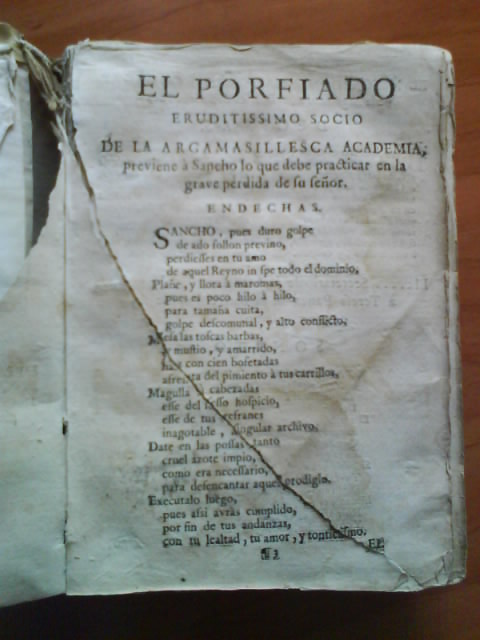 EL PORFIADO
ERUDITISSIMO SOCIO
DE LA ARGAMASILLESCA ACADEMIA,
previene à Sancho lo que debe practicar en la
grave pérdida de su señor.
ENDECHAS.
SANCHO, pues duro golpe
de ado follon previno,
perdiesses en tu amo
de aquel Reyno in spe todo el dominio,
Plañe, y llora à maromas,
pues es poco hilo à hilo,
para tamaña cuita,
golpe descomunal, y alto conflicto,
las toscas barbas,
y mustio, y amarrido,
con cien bofetadas
del pimiento à tus carrillos,
Magulla à cabezadas
esse del hospicio,
esse de tus refranes
inagotable, singular archivo,
Date en las possas tanto
cruel azote impio,
como era necessario,
para desencantar aquel prodigio.
Executalo luego,
pues assi avràs cumplido,
por fin de tus andanzas,
con tu lealtad, tu amor, y tontissimo.
EL
¶ 3